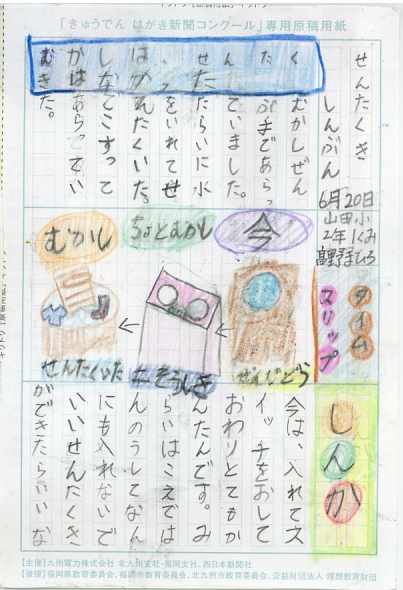 「きゅうでん はがき新聞コンクール」専用原稿用紙
せんたくき
しんぶん
6月20日
山田小
2年1くみ
むかしは、せんたく
むかしぜん
ぶ手であらっ
ていました。
たらいに水
をいれてせ
んたくいた
でこすって
あらってい
た。
タイム
スリップ
今
ちょとむかし
むかし
ぜんじどう
二そうしき
せんたくいた
しんか
今は、入れてス
イッチをおして
おわりとてもか
んたんです。み
らいはこえでは
んのうしてなん
にも入れないで
いいせんたくき
ができたらいいな
【主催】九州電力株式会社 北九州支社・福岡支社、西日本新聞社
【後援】福岡県教育委員会、福岡市教育委員会、北九州市教育委員会、公益財団法人 理想教育財団